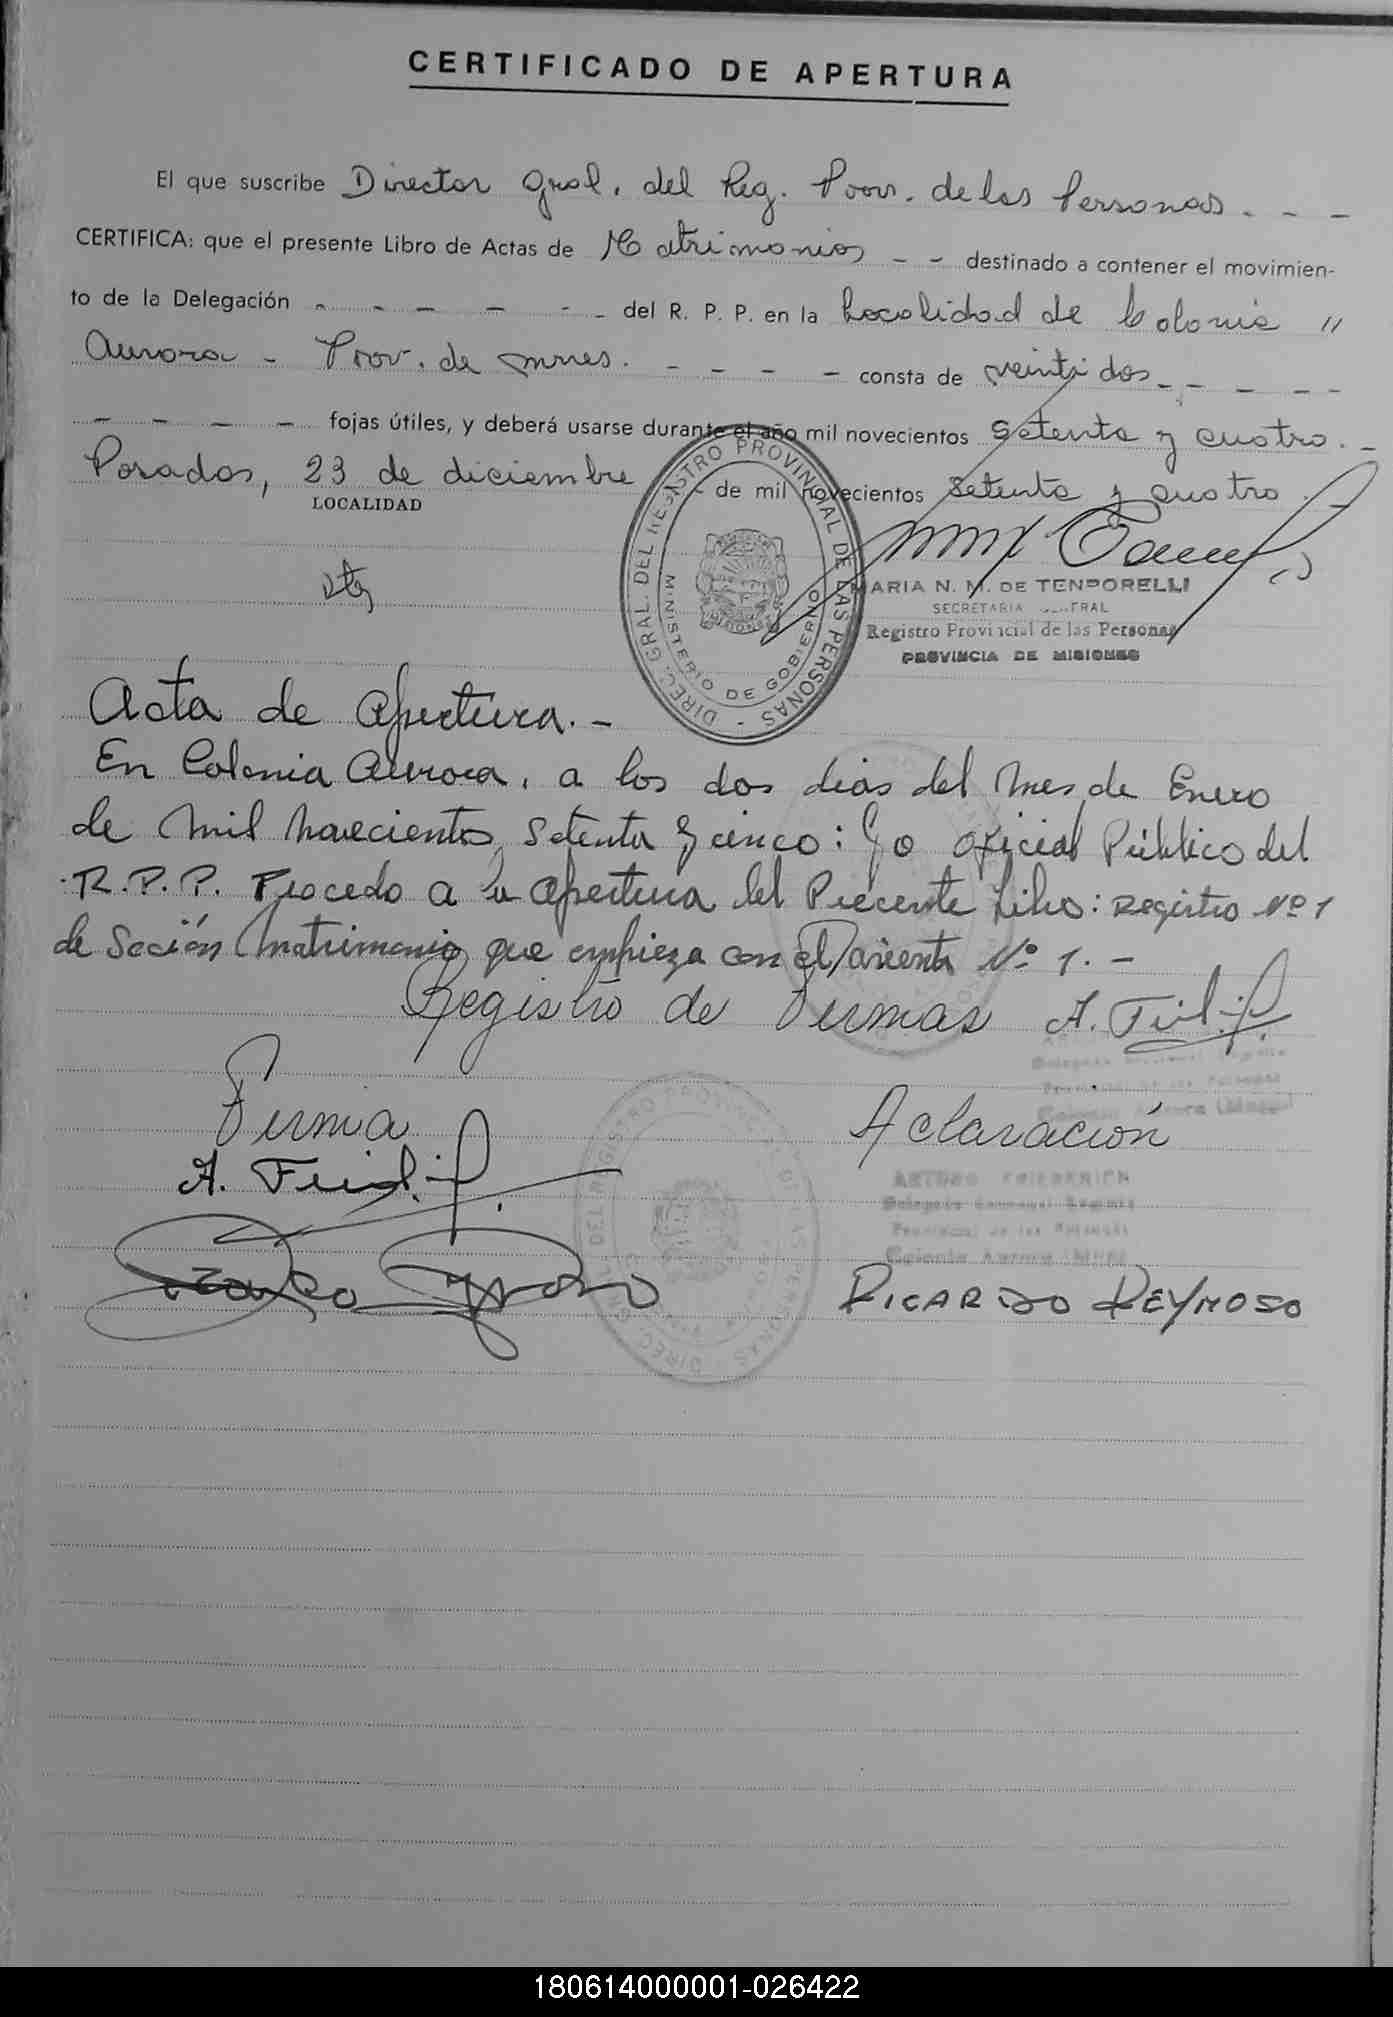 CERTIFICADO DE APERTURA
El que suscribe Director Gral. del Reg. Prov. de las Personas. - -
CERTIFICA: que el presente Libro de Actas de Matrimonios - - destinado a contener el movimien-
to de la Delegación - - - - - - del R. P. P. en la Localidad de Colonia "
Aurora - Prov. de Mnes. - - - - consta de veintidos - - - - -
- - - - fojas útiles, y deberá usarse durante el año mil novecientos setenta y cuatro. -
Posadas, 23 de diciembre - de mil novecientos setenta y cuatro.
LOCALIDAD
DIREC. GRAL. DEL REGISTRO PROVINCIAL DE LAS PERSONAS -
MINISTERIO DE GOBIERNO
MISIONES
MARIA N. M. DE TENPORELLI
SECRETARIA GENERAL
Registro Provincial de las Personas
PROVINCIA DE MISIONES
Acta de Apertura. -
En Colonia Aurora, a los dos dias del Mes de Enero
de Mil Novecientos Setenta y cinco: Yo oficial Público del
R.P.P. Procedo a la apertura del Precente Libro: Registro Nº 1
de Seción Matrimonio que empieza con el asiento Nº 1. -
Registro de Firmas A. Fried.
Firma Aclaración
A. Fried.
ARTURO FRIEDERICH
Provincial de las Personas
Colonia Aurora (Mnes)
RICARDO REYNOSO
180614000001-026422